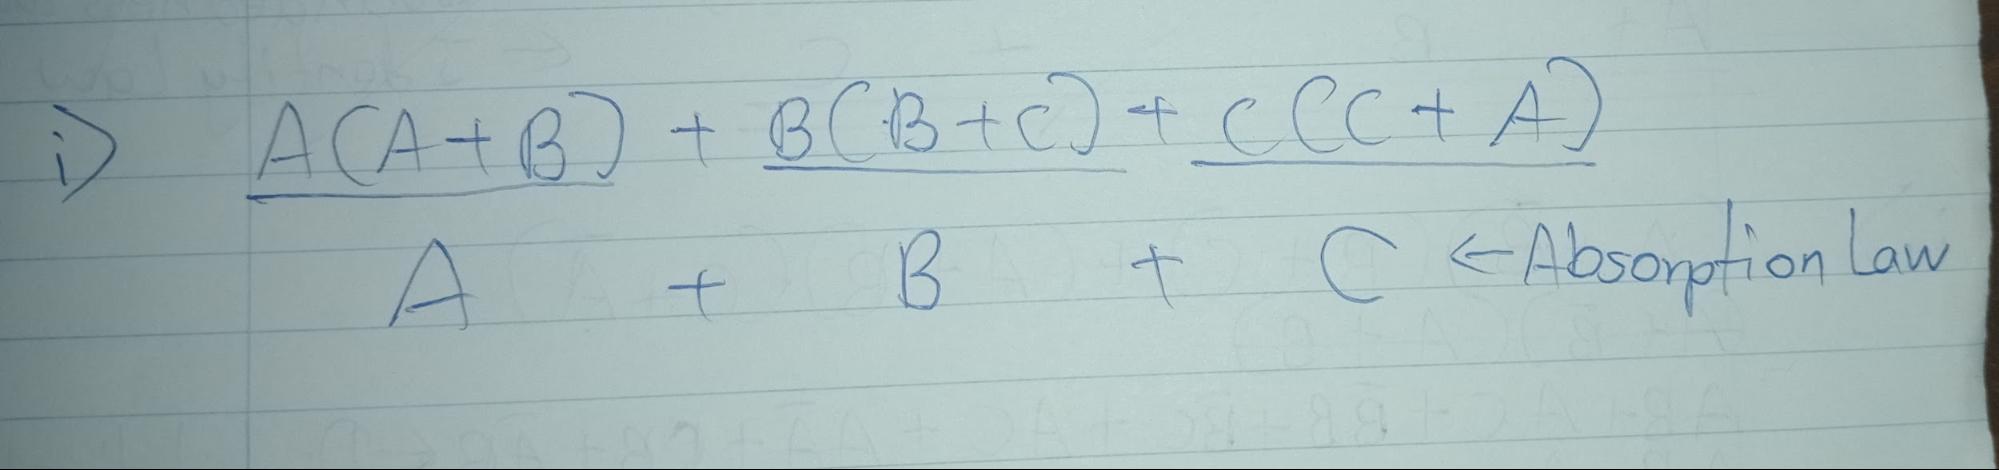 i) A(A+B) + B(B+C) + C(C+A)
A + B + C ← Absorption Law